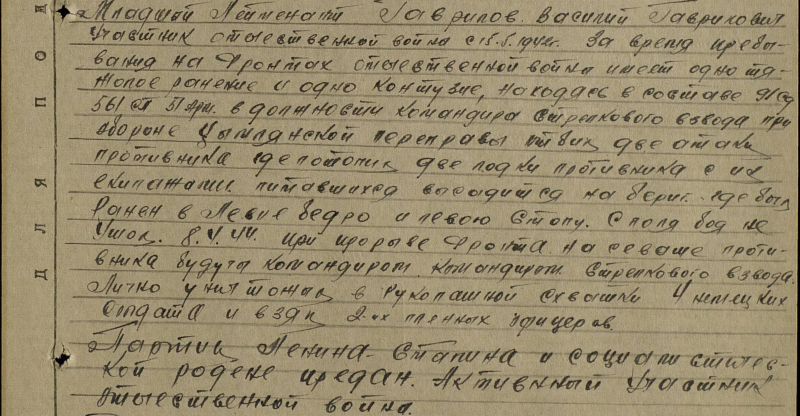 Младшой Лейтенант Гаврилов Василий Гаврилович
Участник отечественной войны с 15.5.1942г. За время пребы-
вания на Фронтах отечественной войны имеет одно тя-
жолое ранение и одно контузие, находясь в составе 91сд
561 сп 51 Арм. в должности командира стрелкового взвода при
обороне Цымлянской переправы отбил две атаки
противника где потопил две лодки противника с их
екипажами питавшихся высадится на берег. где был
ранен в левие бедро и левою стопу. С поля боя не
ушол. 8.4.44. при прорыве Фронта на севаше проти-
вника будучи командиром. командиром стрелкового взвода.
Лично уничтожил в рукопашной схватки 4 немецких
солдата и взял 2-их пленных офицеров.
Партии Ленина-Сталина и социалистичес-
кой родене предан. Активный участник
отечественной война.
ДЛЯ ПОД